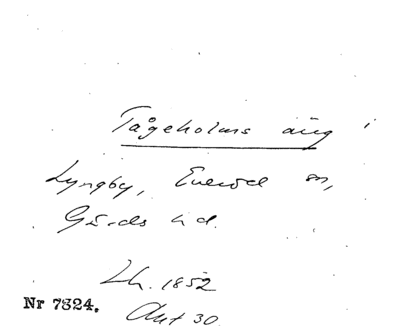 Tågeholms äng i
Lyngby, Everöd sn,
Gärds hd.
Lh. 1852
Nr 7324. Akt 30